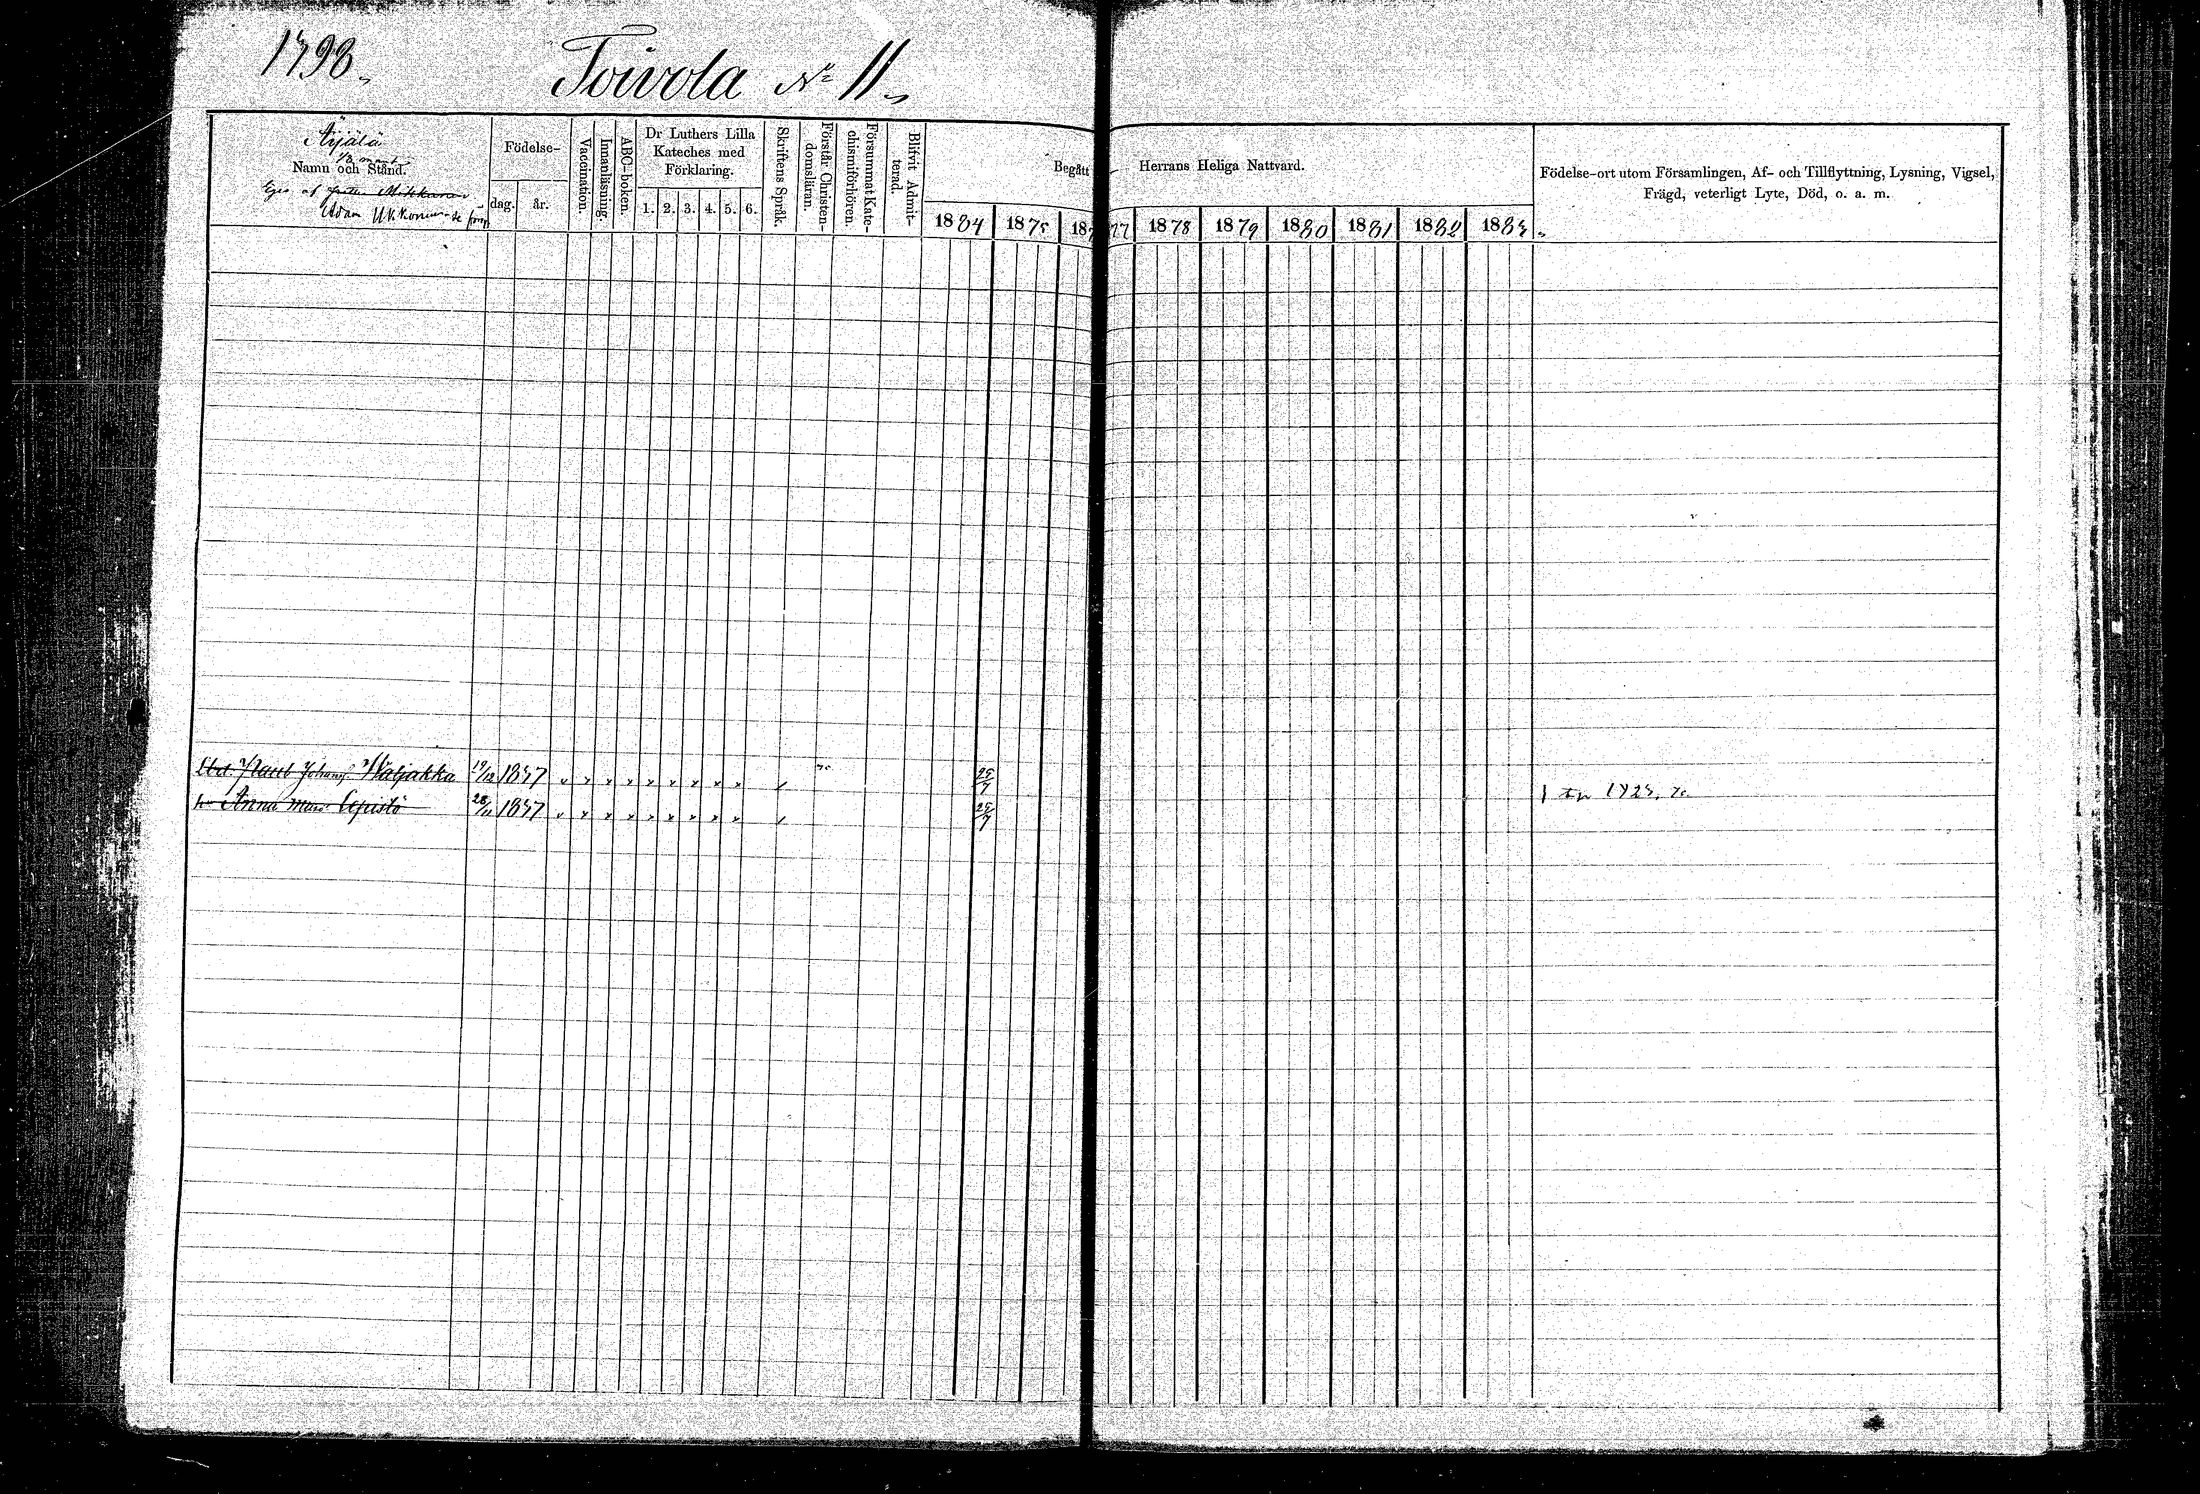 1798.
Toivola No 11.
Äijälä
1/3 mant.
Namn och Stånd.
Eges af
Adam Ukkonen
Födelse-
dag. år.
Vaccination.
Innanläsning.
ABC-boken.
Dr Luthers Lilla
Kateches med
Förklaring.
1. 2. 3. 4. 5. 6.
Skriftens Språk.
Förstår Christen-
domsläran.
Försummat Kate-
chismiförhören.
Blifvit Admit-
terad.
Begått Herrans Heliga Nattvard.
1884 1875 187 77 1878 1879 1880 1881 1882 1883
Födelse-ort utom Församlingen, Af- och Tillflyttning, Lysning, Vigsel,
Frägd, veterligt Lyte, Död, o. a. m.
Johansf. Waljakka 19/12 1847 25/7
h. Anna Lepistö 28/11 1847 25/7